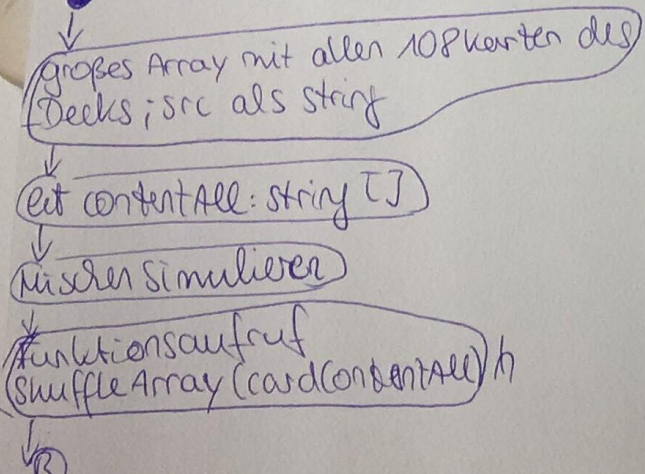 großes Array mit allen 108 Karten des
Decks; src als string
let contentAll: string []
Mischen simulieren
Funktionsaufruf
shuffleArray (cardContentAll) h
B